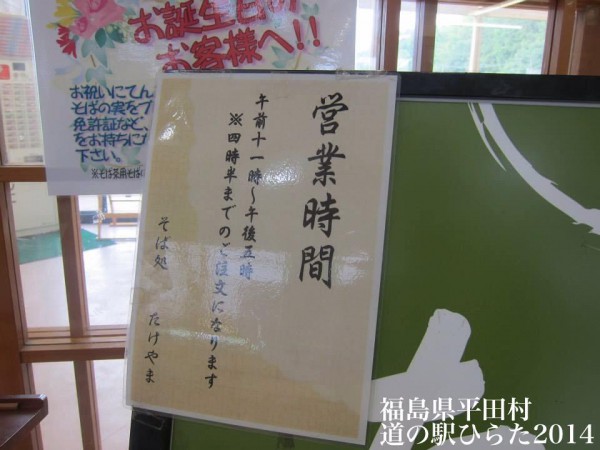 お誕生日の
お客様へ!!
お祝いにてん
そばの実をプ
免許証など、
をお持ちに
下さい。
営業時間
午前十一時～午後五時
※四時半までのご注文になります
そば処 たけやま
福島県平田村
道の駅ひらた2014